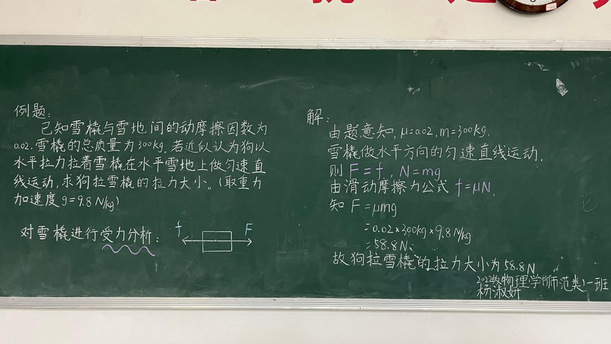 例题:
已知雪橇与雪地间的动摩擦因数为
0.02,雪橇的总质量为300kg,若近似认为狗以
水平拉力拉着雪橇在水平雪地上做匀速直
线运动,求狗拉雪橇的拉力大小。(取重力
加速度g=9.8N/kg)
对雪橇进行受力分析:
f
F
解:
由题意知,μ=0.02,m=300kg.
雪橇做水平方向的匀速直线运动.
则F=f,N=mg
由滑动摩擦力公式f=μN.
知F=μmg
=0.02×300kg×9.8N/kg
=58.8N.
故狗拉雪橇的拉力大小为58.8N
物理学(师范类)一班
杨淑妍